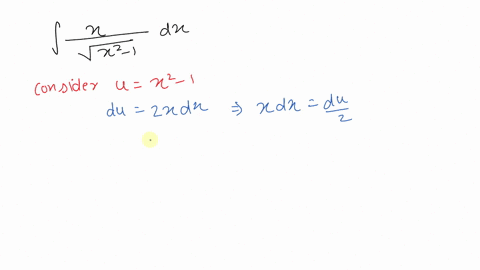 ∫ x / √(x²-1) dx
consider u = x²-1
du = 2x dx ⇒ x dx = du/2